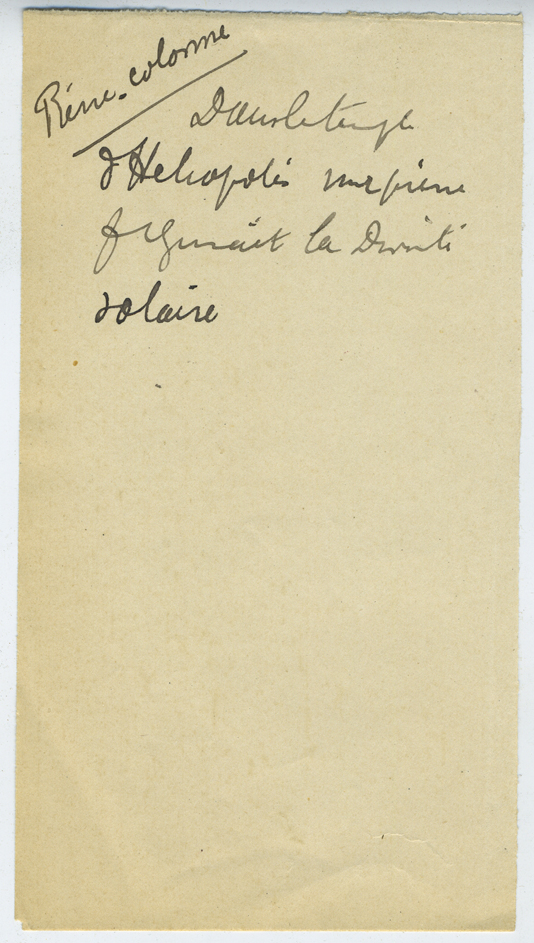 Pierre-colonne
Dans le temple
d'Heliopolis une pierre
figurait la Divinité
solaire